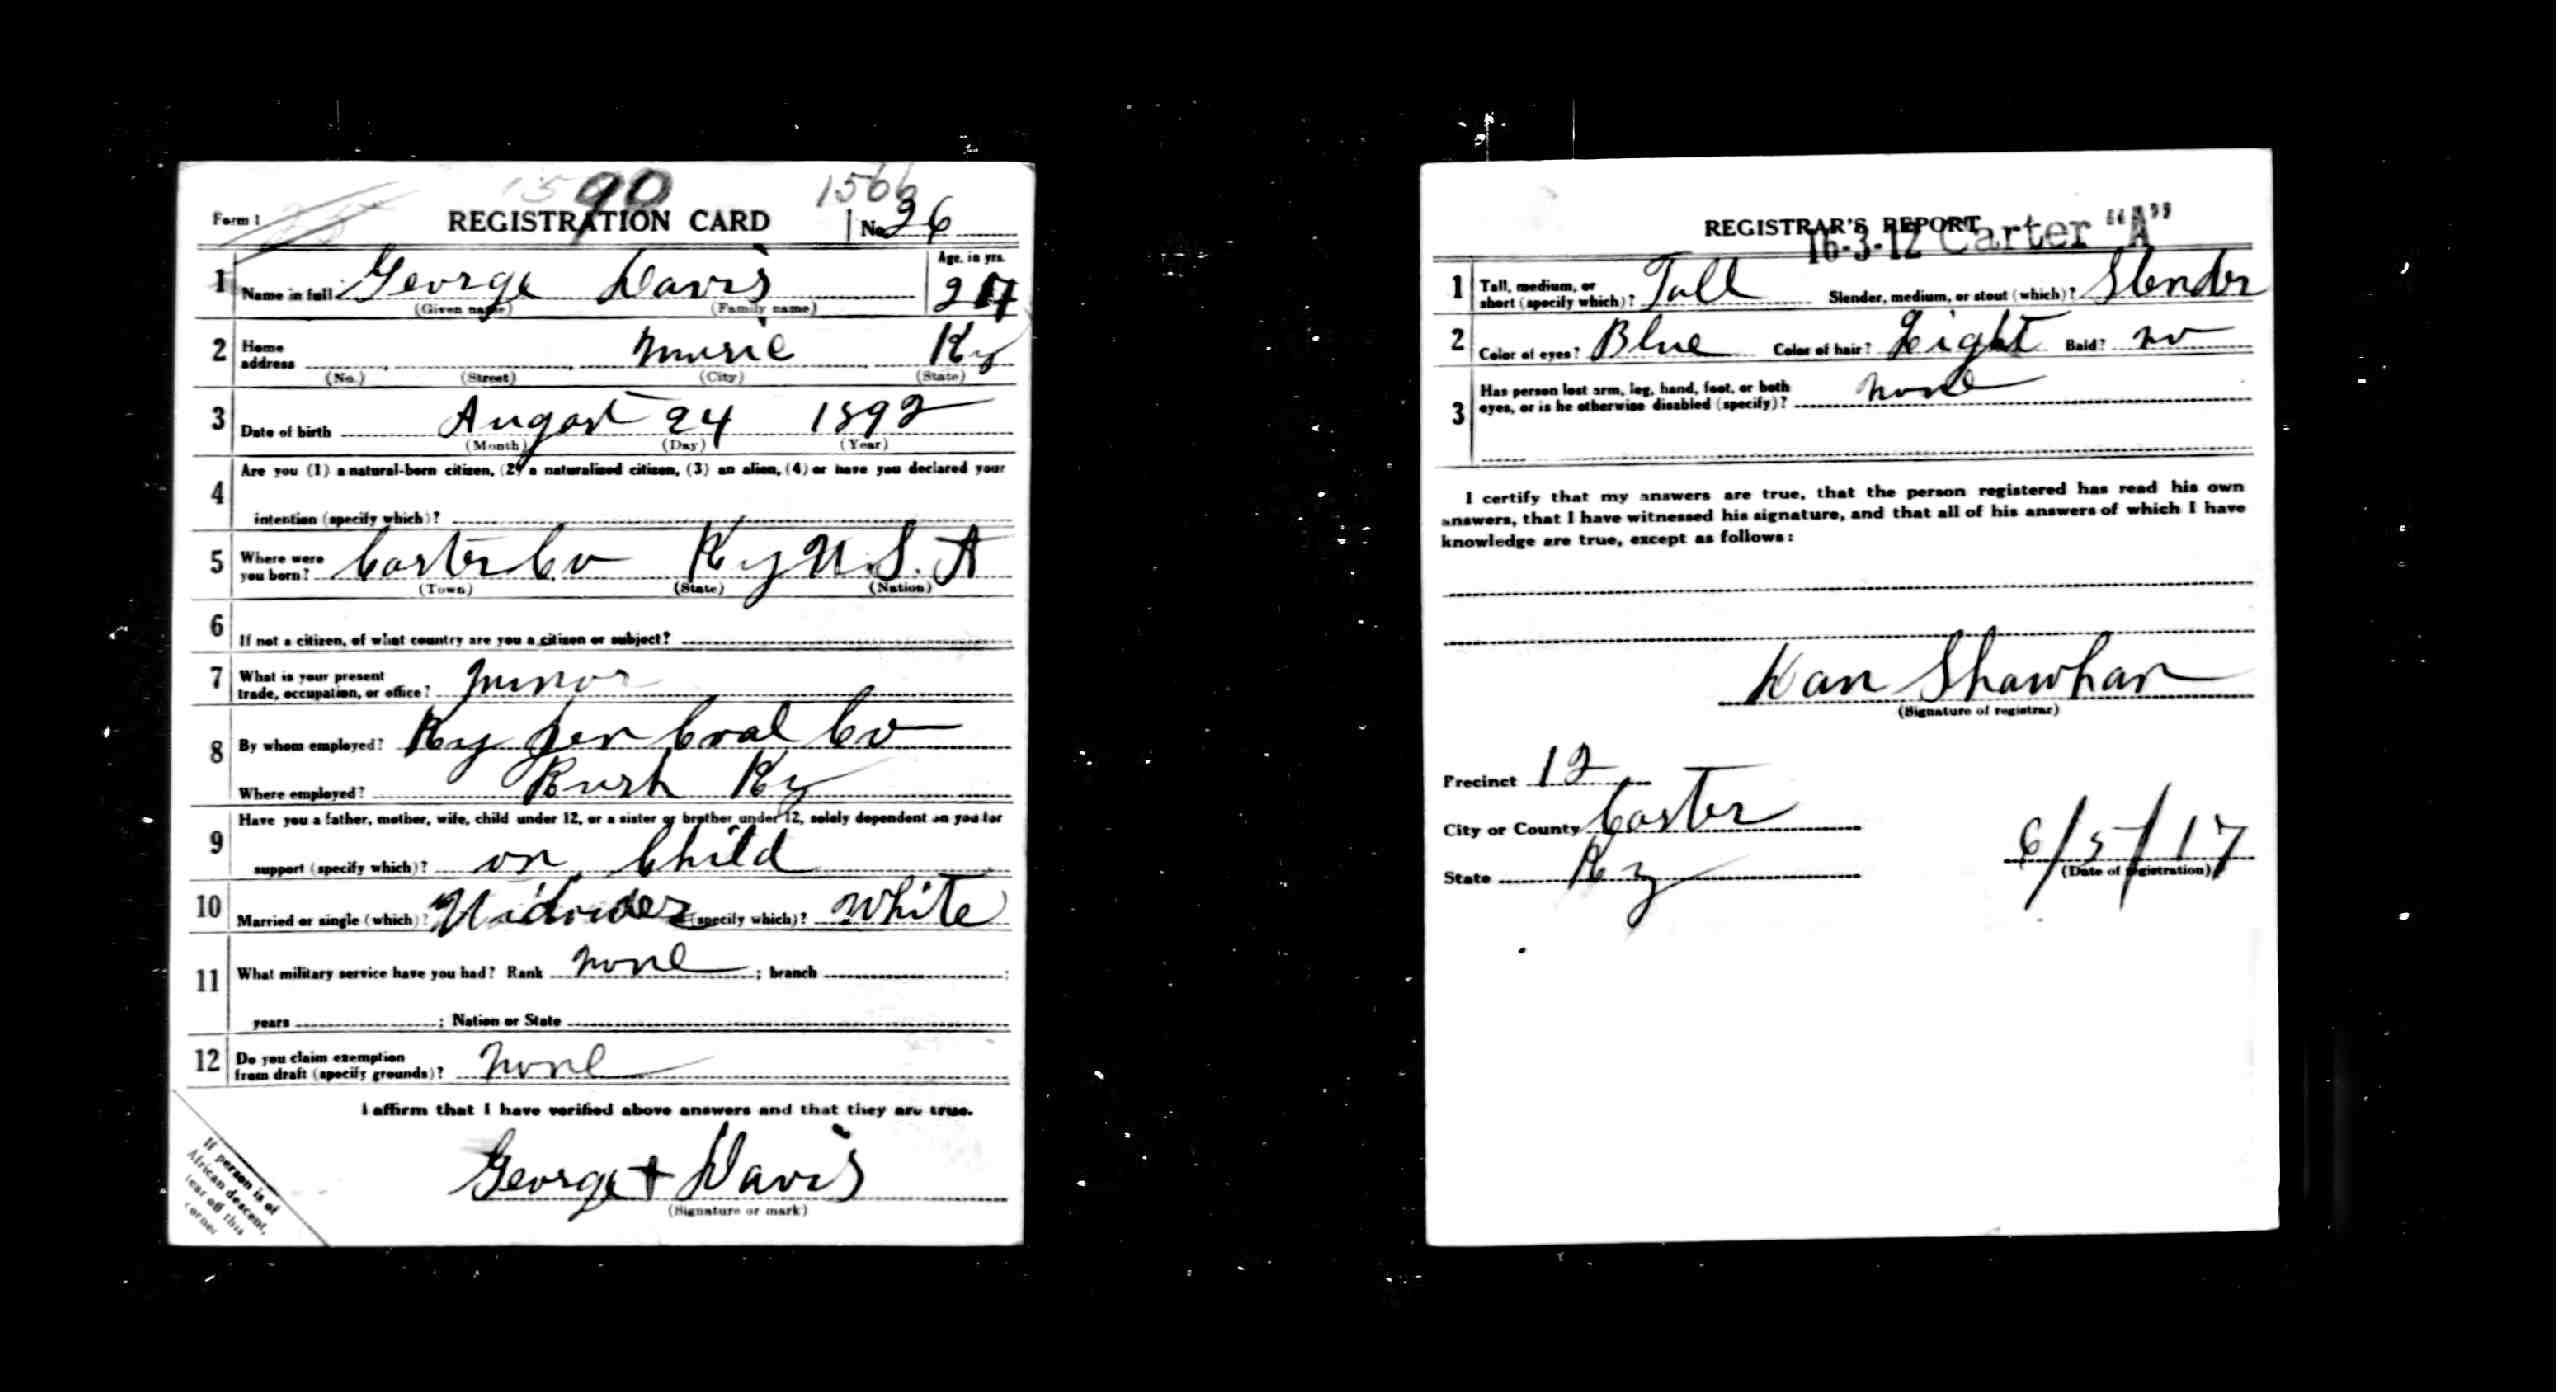 1590
1566
Form 1 REGISTRATION CARD No. 26
1 Name in full George Davis Age, in yrs. 
(Given name) (Family name)
2 Home address Music Ky
(No.) (Street) (City) (State)
3 Date of birth August 24 1892
(Month) (Day) (Year)
4 Are you (1) a natural-born citizen, (2) a naturalized citizen, (3) an alien, (4) or have you declared your
intention (specify which)?
5 Where were you born? Carter Co Ky U.S.A
(Town) (State) (Nation)
6 If not a citizen, of what country are you a citizen or subject?
7 What is your present trade, occupation, or office? Minor
8 By whom employed? Ky Jen Coal Co
Where employed? Rush Ky
9 Have you a father, mother, wife, child under 12, or a sister or brother under 12, solely dependent on you for
support (specify which)? on Child
10 Married or single (which)? Widower (specify which)? White
11 What military service have you had? Rank none ; branch ;
years ; Nation or State
12 Do you claim exemption from draft (specify grounds)? none
I affirm that I have verified above answers and that they are true.
George + Davis
(Signature or mark)
If person is of
African descent,
tear off this
corner
REGISTRAR'S REPORT
16-3-12 Carter "A"
1 Tall, medium, or short (specify which)? Tall Slender, medium, or stout (which)? Slender
2 Color of eyes? Blue Color of hair? Light Bald? no
3 Has person lost arm, leg, hand, foot, or both
eyes, or is he otherwise disabled (specify)? none
I certify that my answers are true, that the person registered has read his own
answers, that I have witnessed his signature, and that all of his answers of which I have
knowledge are true, except as follows:
Dan Shawhan
(Signature of registrar)
Precinct 12
City or County Carter
State Ky
6/5/17
(Date of registration)